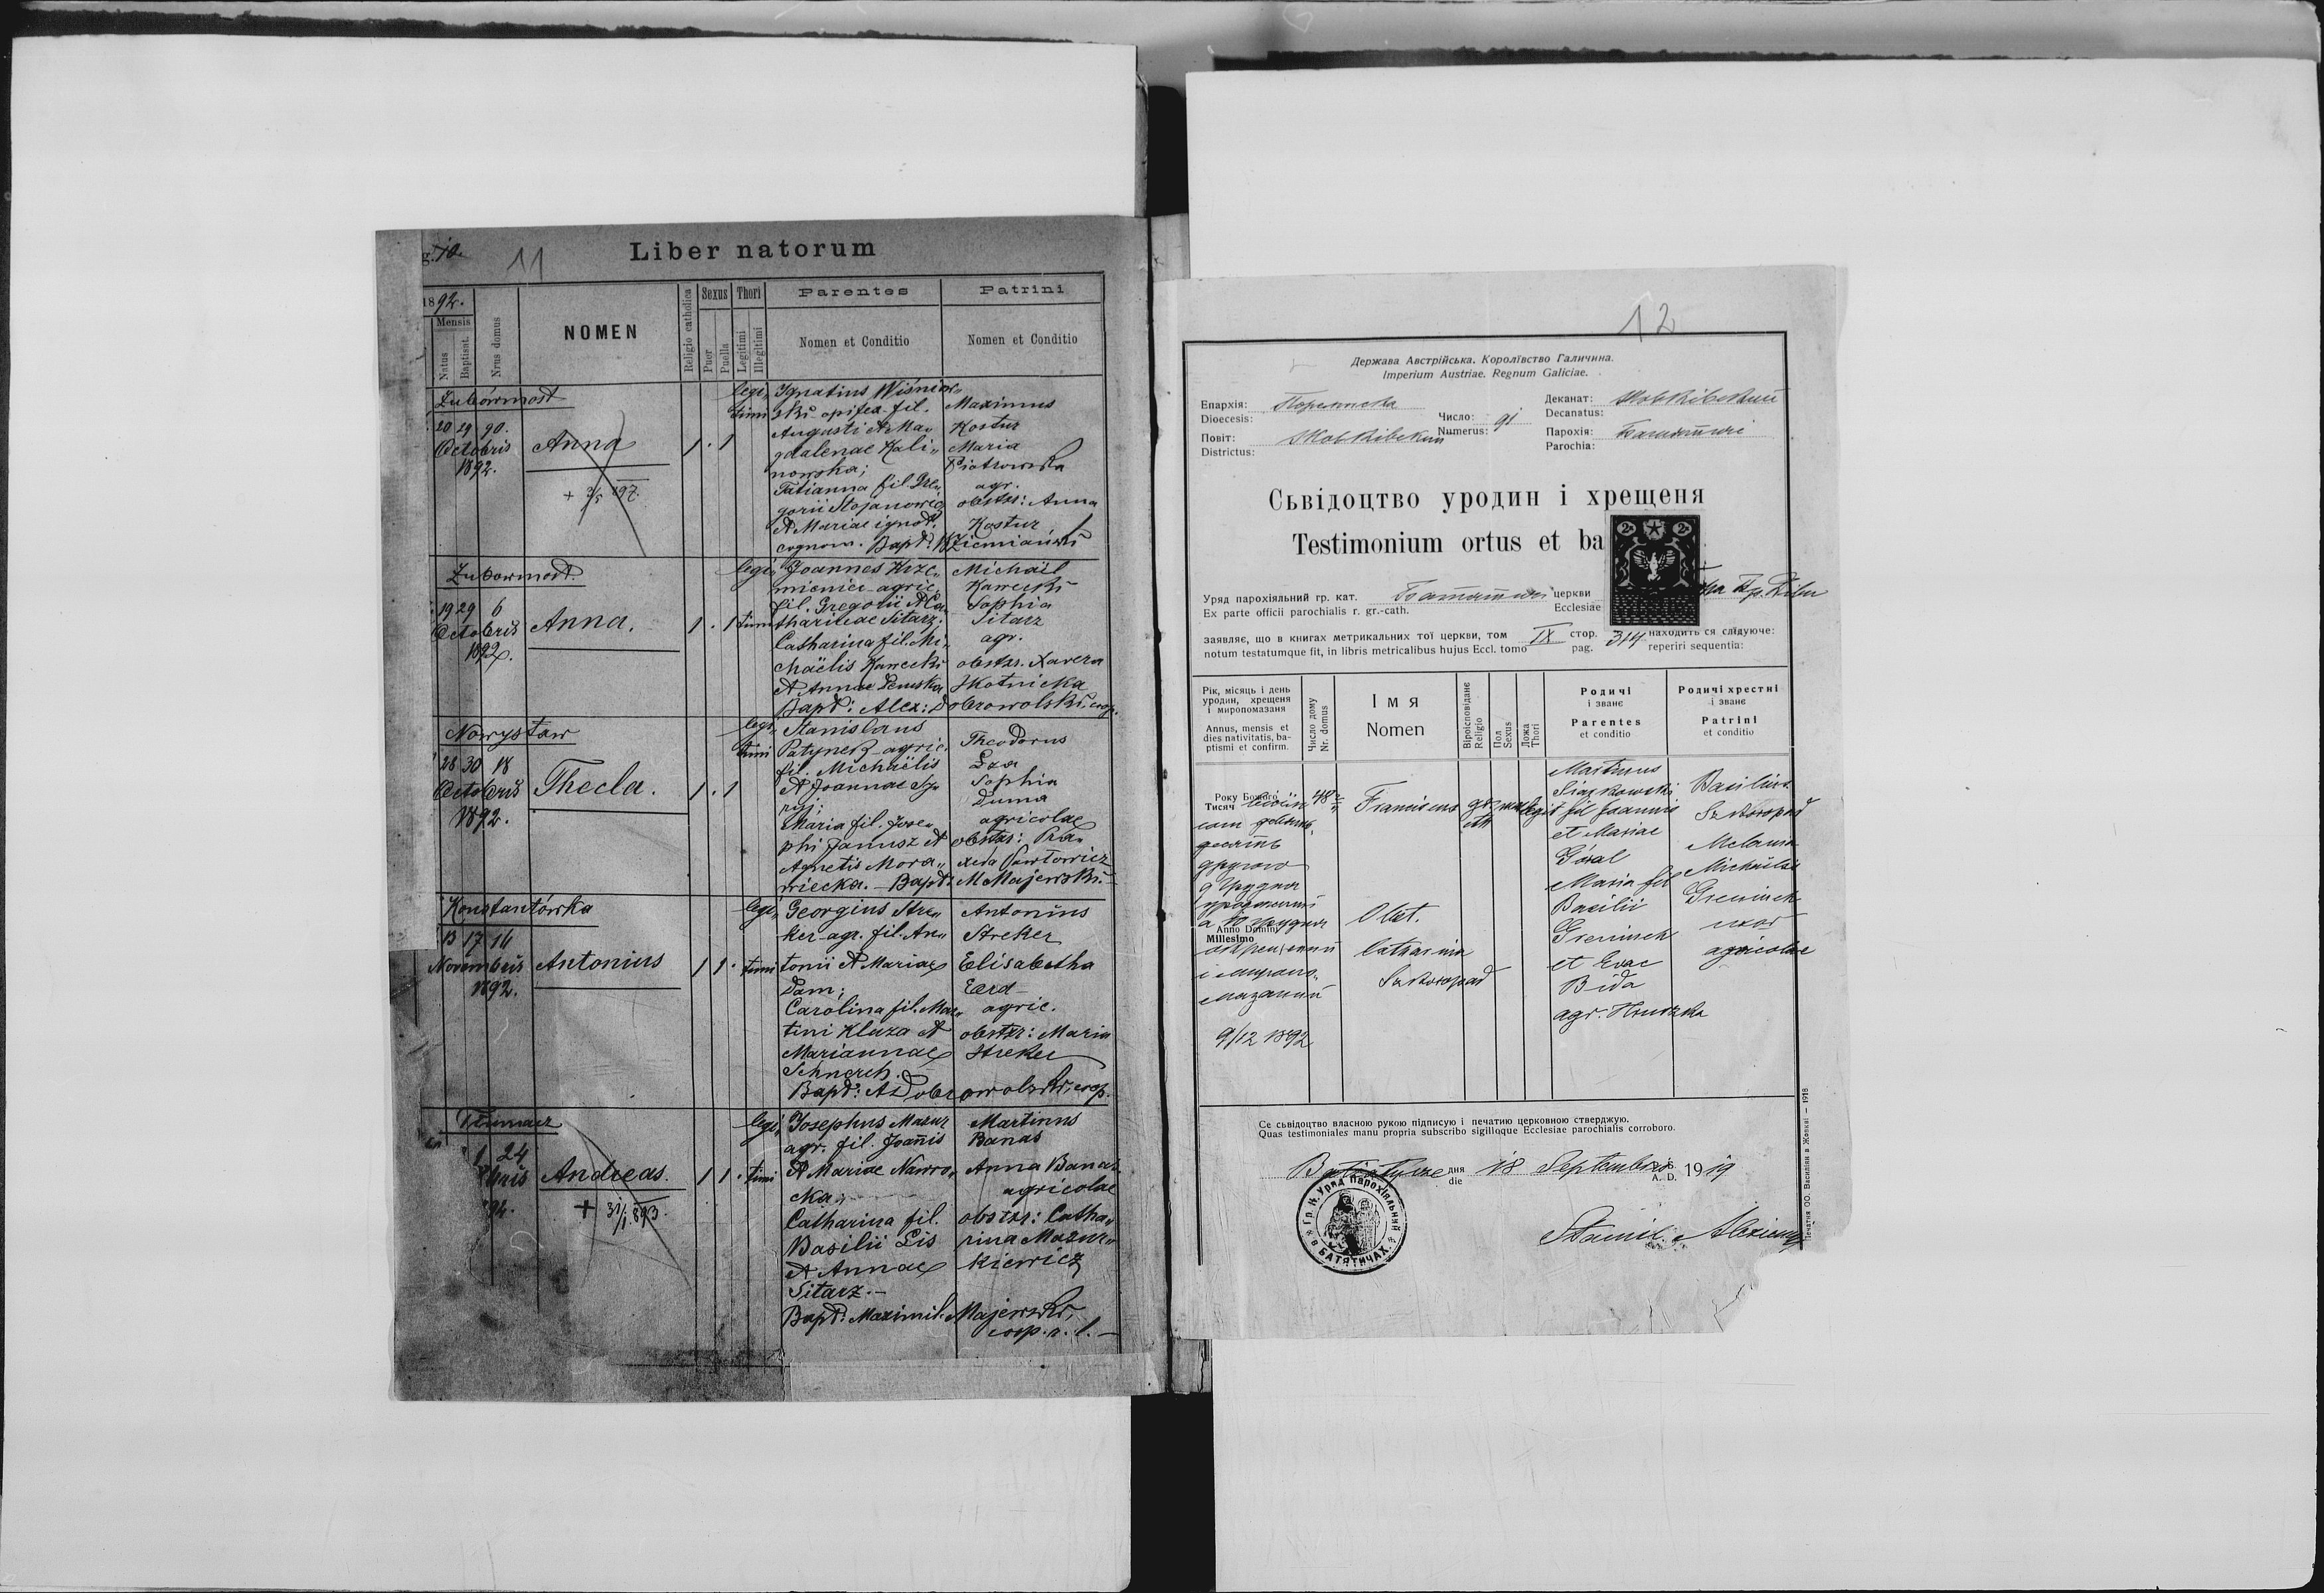 11
Liber natorum
1892.
Mensis
Natus
Baptisat.
Nrus domus
NOMEN
Religio catholica
Sexus
Puer
Puella
Thori
Legitimi
Illegitimi
Parentes
Nomen et Conditio
Patrini
Nomen et Conditio
Żubówmost
20 29 90.
Octobris
1892.
Anna
1 . 1
legi„
timi
Ignatius Wiśniow„
ski opifex fil.
Augusti et Ma„
gdalenae Kali„
nowska;
Tatianna fil. Gre„
gorii Stojanowicz
et Mariae ignot.
cognom. Bapt:
Maximus
Kostur
Maria
Piotrowska
agr.
obstr: Anna
Kostur
Ziemiański
Żubowmost.
19 29 6
Octobris
1892.
Anna.
1 . 1
legi„
timi
Joannes Krze„
mieniec agric.
fil. Gregorii et Ca„
tharinae Sitarz.
Catharina fil. Mi„
chaëlis Kawecki
et Annae
Bapt: Alex: Dobrowolski, coop.
Michaël
Kawecki
Sophia
Sitarz
agr.
obstr. Xavera
Skotnicka
Nowystaw
28 30 18
Octobris
1892.
Thecla.
1 . 1
legi„
timi
Stanislaus
Patynek agric.
fil. Michaëlis
et Joannae
Maria fil. Jose„
phi Janusz et
Agnetis Mora„
wiecka. — Bapt: M Majewski. —
Theodorus
Sophia
Duma
agricolae
obstr: Pra„
xeda Pawłowicz
Konstantówka
13 17 14
Novembris
1892.
Antonius
1 1 .
legi„
timi
Georgius Stre„
ker agr. fil. An„
tonii et Mariae
Dam;
Carolina fil. Mar„
tini Kluza et
Mariannae
Schnerch.
Bapt: A Dobrowolski, coop.
Antonius
Streker
Elisabetha
agric.
obstr: Maria
Streker
Tłumacz
1 24
Andreas.
+ 31/1 893.
1 1 .
legi„
timi
Josephus Mazur
agr. fil. Joannis
et Mariae Nawro„
cka;
Catharina fil.
Basilii Lis
et Annae
Sitarz. —
Bapt: Maximil. Majewski,
coop. r. l. —
Martinus
Banas
Anna Banas
agricolae
obstr: Catha„
rina Mazur„
kiewicz
12
Держава Австрійська. Королівство Галичина.
Imperium Austriae. Regnum Galiciae.
Епархія:
Dioecesis:
Число: 91
Numerus:
Деканат: Жовківский
Decanatus:
Повіт: Жовківский
Districtus:
Парохія: Батятичі
Parochia:
Сьвідоцтво уродин і хрещеня
Testimonium ortus et ba
2 2
Уряд парохіяльний гр. кат. Батятичі церкви
Ex parte officii parochialis r. gr.-cath. Ecclesiae
заявляє, що в книгах метрикальних тої церкви, том IX стор. 314 находить ся слідуюче:
notum testatumque fit, in libris metricalibus hujus Eccl. tomo pag. reperiri sequentia:
Рік, місяць і день
уродин, хрещеня
і миропомазаня
Annus, mensis et
dies nativitatis, ba-
ptismi et confirm.
Число дому
Nr. domus
Імя
Nomen
Віроісповіданє
Religio
Пол
Sexus
Ложа
Thori
Родичі
і званє
Parentes
et conditio
Родичі хрестні
і званє
Patrini
et conditio
Року Божого
Тисяч
девять
десять
другого
9 Грудня
а 10 грудня
Anno Domini
Millesimo
9/12 1892
48
Franciscus
Obst.
Catharina
Szktoropad
legit
Martinus
fil Joannis
et Mariae
Góral
Maria fil
Basilii
Greniuch
et Evae
Bida
agr.
Basilius
Melania
Michaëlis
Greniuch
uxor
agricolae
Се сьвідоцтво власною рукою підписую і печатию церковною стверджую.
Quas testimoniales manu propria subscribo sigilloque Ecclesiae parochialis corroboro.
Batiatycze дня 18 Septembris 1919
die A. D.
Гр. К. Уряд Парохіяльний
в БАТЯТИЧАХ
Печатня ОО. Василіян в Жовкві — 1918